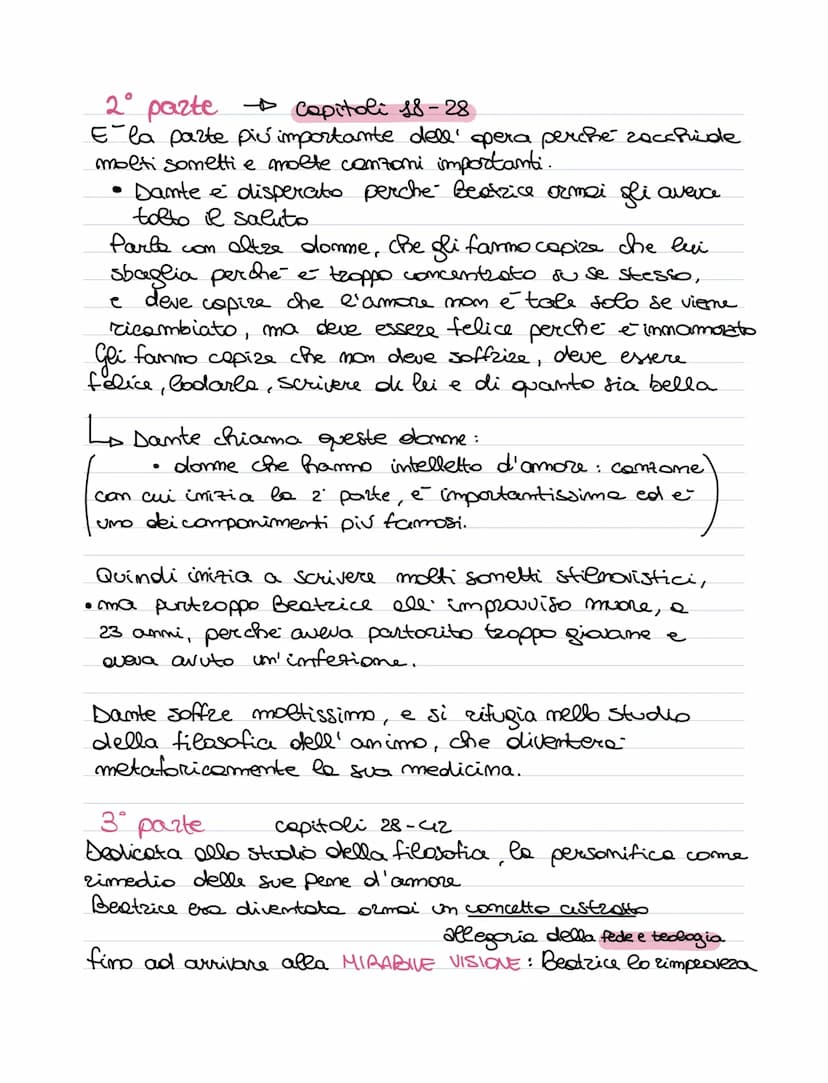 2° parte → Capitoli 18-28
E' la parte più importante dell'opera perché racchiude
molti sonetti e molte canzoni importanti.
• Dante è disperato perché Beatrice ormai gli aveva
tolto il saluto
Parla con altre donne, che gli fanno capire che lui
sbaglia perché è troppo concentrato su se stesso,
e deve capire che l'amore non è tale solo se viene
ricambiato, ma deve essere felice perché è innamorato
Gli fanno capire che non deve soffrire, deve essere
felice, lodarla, scrivere di lei e di quanto sia bella
↳ Dante chiama queste donne:
• donne che hanno intelletto d'amore: canzone
con cui inizia la 2° parte, è importantissima ed è
uno dei componimenti più famosi.
Quindi inizia a scrivere molti sonetti stilnovistici,
• ma purtroppo Beatrice all'improvviso muore, a
23 anni, perché aveva partorito troppo giovane e
aveva avuto un'infezione.
Dante soffre moltissimo, e si rifugia nello studio
della filosofia dell'animo, che diventerà
metaforicamente la sua medicina.
3° parte capitoli 28-42
Dedicata allo studio della filosofia, la personifica come
rimedio delle sue pene d'amore
Beatrice era diventata ormai un concetto astratto
allegoria della fede e teologia
fino ad arrivare alla MIRABILE VISIONE: Beatrice lo rimprovera